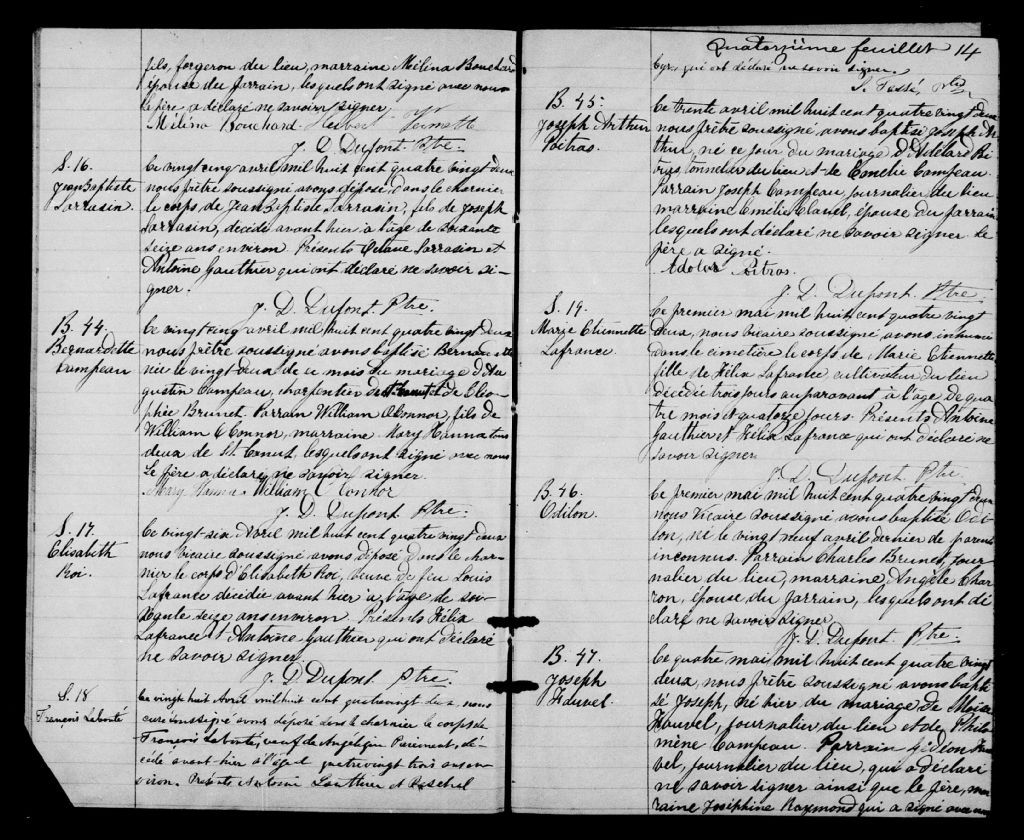 fils, forgeron du lieu, marraine Mélina Bouchard
épouse du parrain, lesquels ont signé avec nous
le père a déclaré ne savoir signer.
Mélina Bouchard Herbert
J. D. Dupont Ptre.
S. 16.
Jean Baptiste
Larrasin.
Le vingt cinq avril mil huit cent quatre vingt deux
nous prêtre soussigné avons déposé, dans le charnier
le corps de Jean Baptiste Larrasin, fils de Joseph
Larrasin, décédé avant hier à l'âge de soixante
seize ans environ. Présents Octave Larrasin et
Antoine Gauthier qui ont déclaré ne savoir si-
gner.
J. D. Dupont. Ptre.
B. 44.
Bernadette
Campeau
Le vingt cinq avril mil huit cent quatre vingt deux
nous prêtre soussigné avons baptisé Bernadette
née le vingt deux de ce mois du mariage d'Au
gustin Campeau, charpentier de St. Canut et de Cléo-
phée Brunet. Parrain William O'Connor, fils de
William O'Connor, marraine Mary Hanna tous
deux de St. Canut, lesquels ont signé avec nous
Le père a déclaré ne savoir signer.
Mary Hanna William O Connor
J. D. Dupont Ptre.
S. 17.
Elisabeth
Roi.
Le vingt six Avril mil huit cent quatre vingt deux
nous Vicaire soussigné avons déposé dans le char-
nier le corps d'Elisabeth Roi, veuve de feu Louis
Lafrance décédée avant hier à l'âge de soi-
xante seize ans environ. Présents Félix
Lafrance et Antoine Gauthier qui ont déclaré
ne savoir signer.
J. D. Dupont Ptre.
S. 18
François Labonté
Le vingt huit Avril mil huit cent quatrevingt deux, nous
curé soussigné avons déposé dans le charnier le corps de
François Labonté, veuf de Angélique Paiement, dé-
cédé avant-hier à l'âge de quatrevingt trois ans en-
viron. Présents Antoine Gauthier et Paschal
Quatorzième feuillet 14
Cyr qui ont déclaré ne savoir signer.
S. Tassé, Ptre
B. 45.
Joseph Arthur
Poitras.
Le trente avril mil huit cent quatre vingt deux
nous prêtre soussigné avons baptisé Joseph Ar
thur, né ce jour du mariage d'Adélard Poi
tras tonnelier du lieu et de Emélie Campeau.
Parrain Joseph Campeau, journalier du lieu
marraine Emélie Clavel, épouse du parrain
lesquels ont déclaré ne savoir signer. Le
père a signé.
Adolar Poitras.
J. D. Dupont. Ptre.
S. 19.
Marie Etiennette
Lafrance.
Le premier mai mil huit cent quatre vingt
deux, nous Vicaire soussigné avons inhumé
dans le cimetière le corps de Marie Etiennette
fille de Félix Lafrance, cultivateur du lieu
décédée trois jours auparavant à l'âge de qua
tre mois et quatorze jours. Présents Antoine
Gauthier et Félix Lafrance qui ont déclaré ne
savoir signer
J. D. Dupont Ptre.
B. 46.
Odilon.
Le premier mai mil huit cent quatre vingt deux
nous Vicaire soussigné avons baptisé Odi-
lon, né le vingt neuf avril dernier de parents
inconnus. Parrain Charles Brunet, jour
nalier du lieu, marraine, Angèle Char
ron, épouse du parrain, lesquels ont dé
claré ne savoir signer
J. D. Dupont. Ptre.
B. 47.
Joseph
Fauvel.
Le quatre mai mil huit cent quatre vingt
deux, nous prêtre soussigné avons bapti
sé Joseph, né hier du mariage de Moïse
Fauvel, journalier du lieu et de Philo
mène Campeau. Parrain Gédéon Fau
vel, journalier du lieu, qui a déclaré
ne savoir signer ainsi que le père, mar
raine Joséphine Raymond qui a signé avec nous